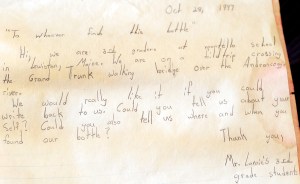 Oct 24, 1997
"To whoever finds this bottle"
Hi, we are 3rd graders at school
in Lewiston, Maine. We are on a field trip crossing
in the Grand Trunk walking bridge over the Androscoggin
river.
We would really like it if you could
write back to us. Could you tell us about your
self? Could you also tell us where and when you
found our bottle?
Thank you,
Mr. 3rd
grade students